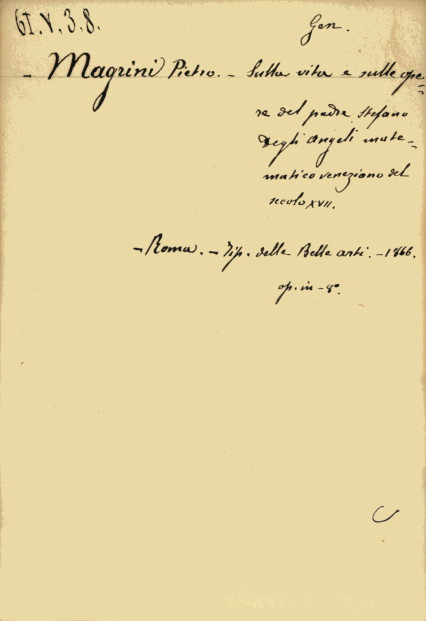 61.V.3.8.
Gen.
- Magrini Pietro. - Sulla vita e sulle ope=
re del padre Stefano
Degli Angeli mate=
matico veneziano del
secolo XVII.
- Roma. - Tip. delle Belle arti. - 1866.
op. in - 8°.